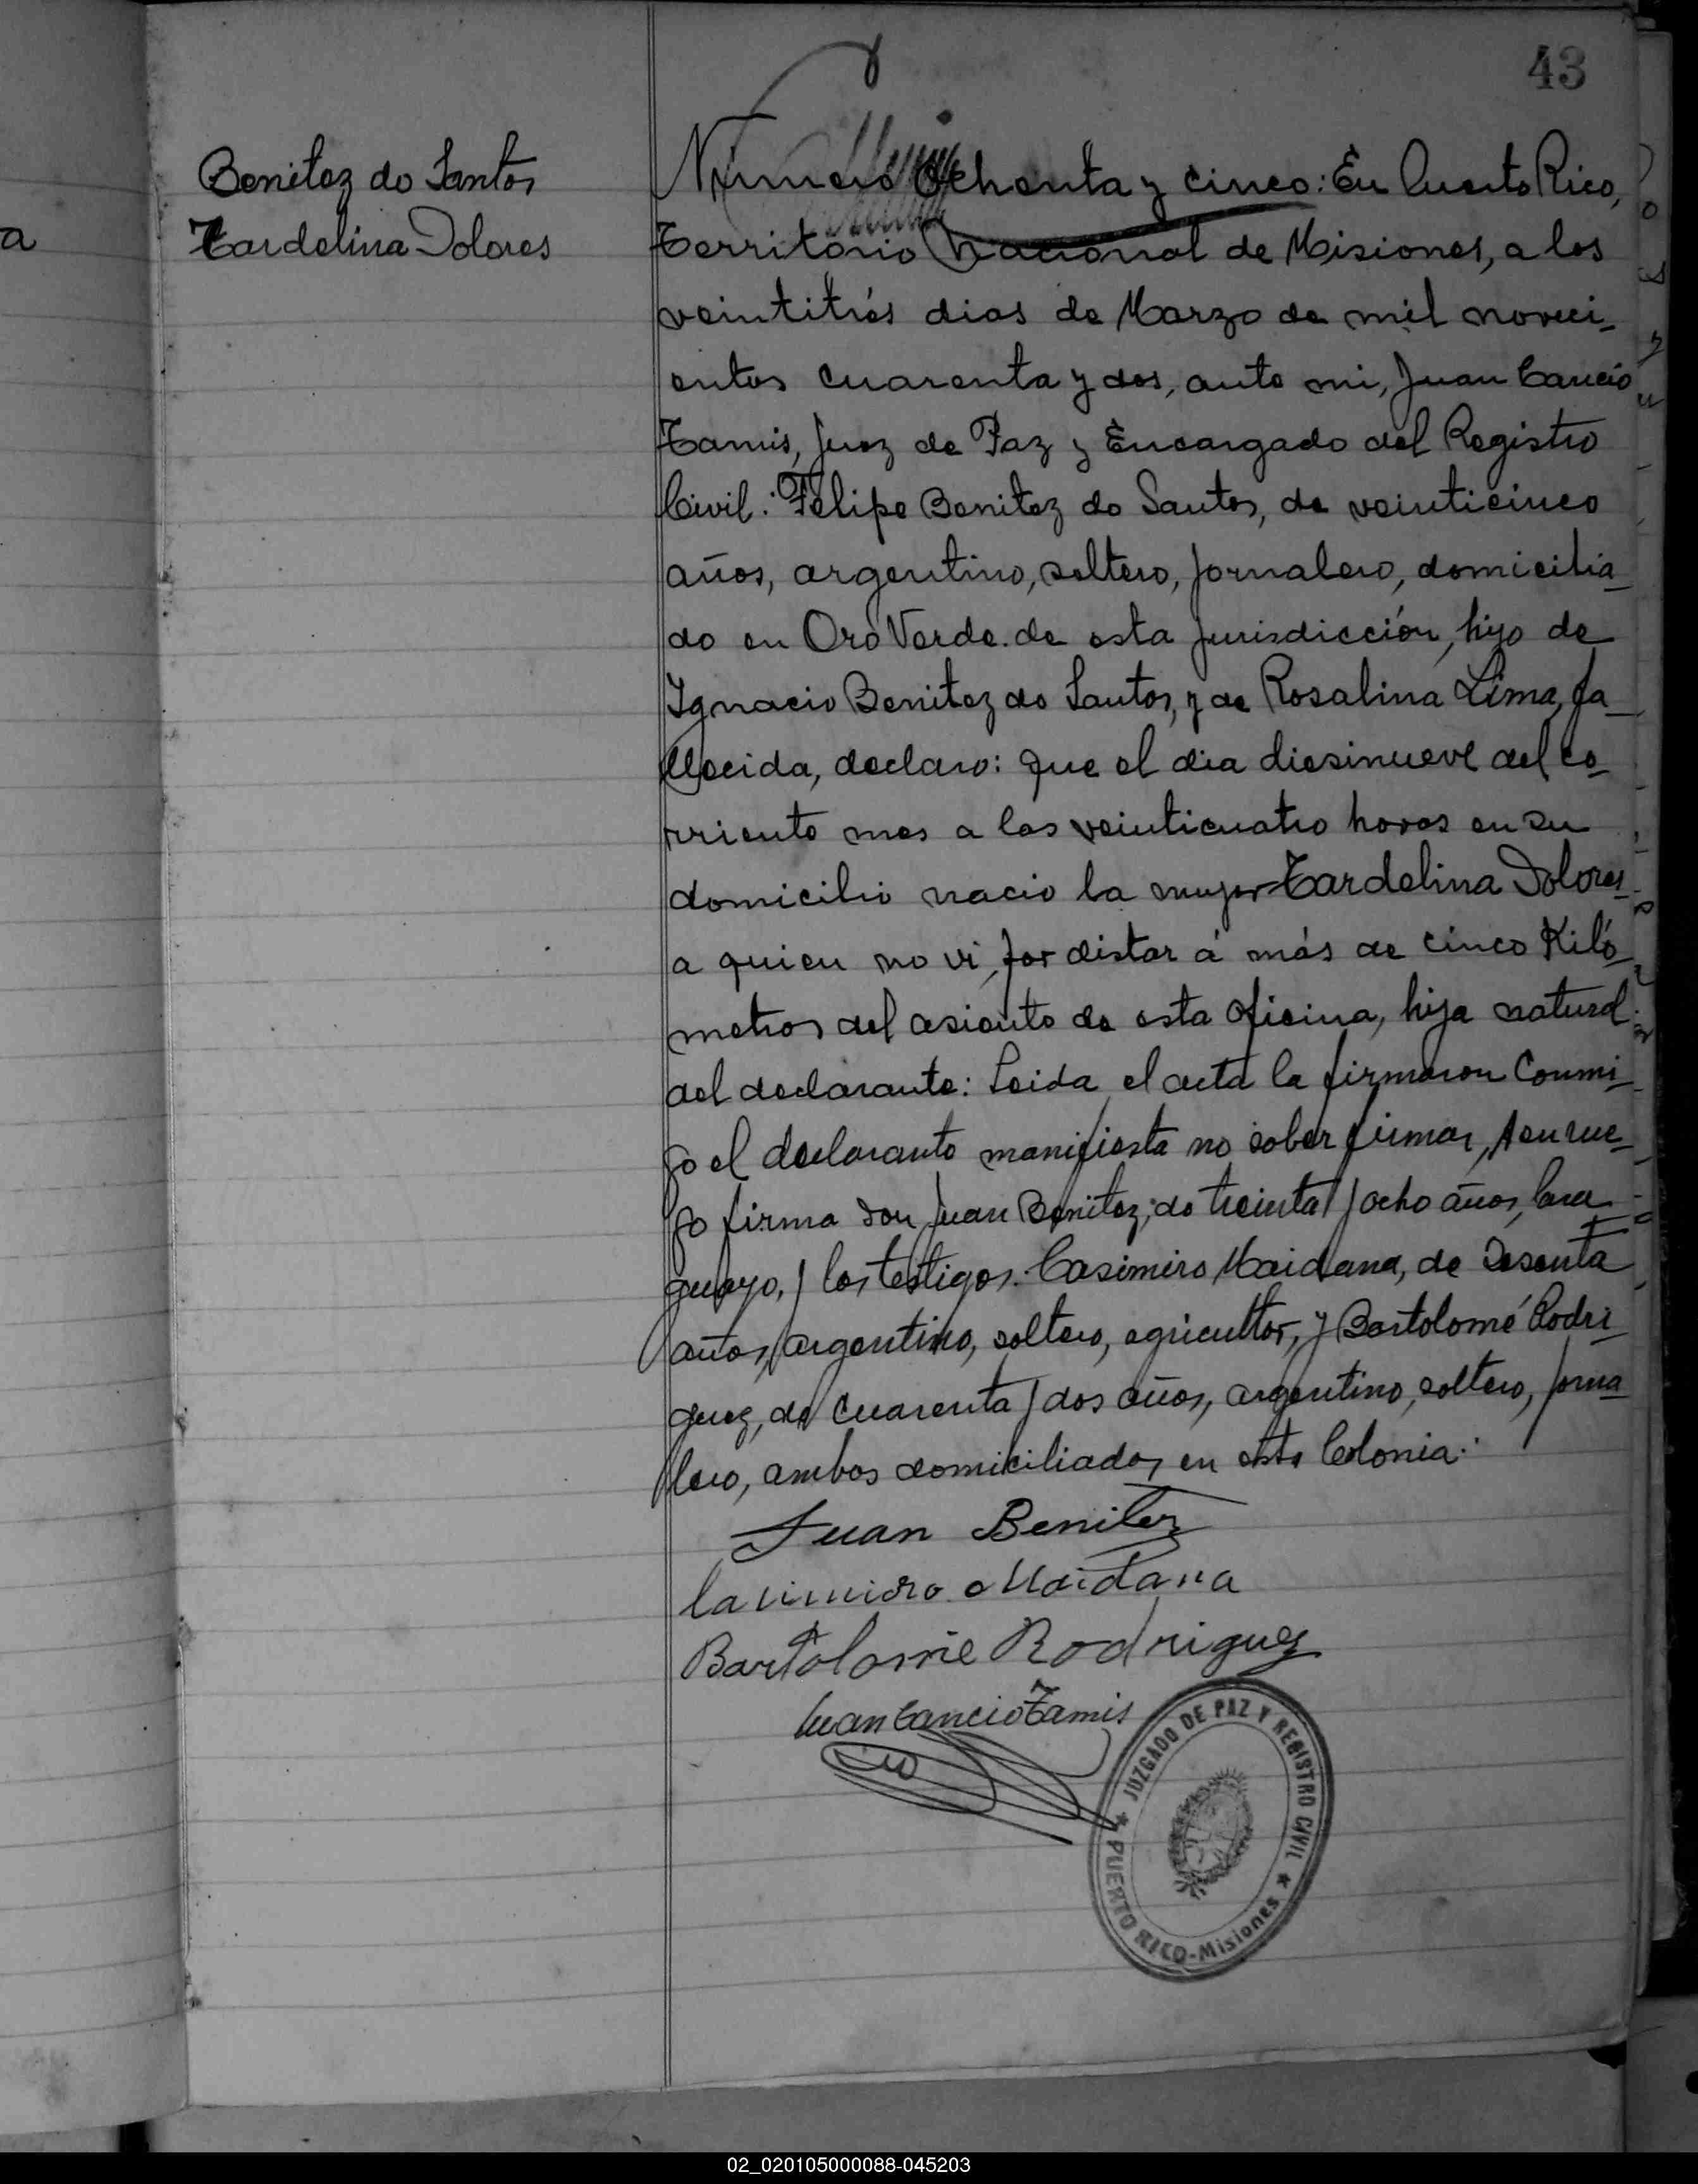 43
Benitez do Santos
Tardelina Dolores
a
Número Ochenta y cinco: En Puerto Rico,
Territorio Nacional de Misiones, a los
veintitrés dias de Marzo de mil noveci-
entos cuarenta y dos, ante mi, Juan Cancio
Tamis, Juez de Paz y Encargado del Registro
Civil: Felipe Benitez do Santos, de veinticinco
años, argentino, soltero, jornalero, domicilia-
do en Oro Verde de esta jurisdicción, hijo de
Ignacio Benitez do Santos, y de Rosalina Lima, fa-
llecida, declaro: que el dia diesinueve del co-
rriente mes a las veinticuatro horas en su
domicilio nacio la mujer Tardelina Dolores
a quien no vi por distar á más de cinco Kiló-
metros del asiento de esta oficina, hija natural
del declarante: Leida el acta la firmaron Conmi-
go el declarante manifiesta no saber firmar, A su rue-
go firma don Juan Benitez, de treinta y ocho años, Para-
guayo, y los testigos. Casimiro Maidana, de Sesenta
años, argentino, soltero, agricultor, y Bartolomé Rodri-
guez, de cuarenta y dos años, argentino, soltero, jorna-
lero, ambos domiciliados en esta Colonia:
Juan Benitez
Casimiro Maidana
Bartolome Rodriguez
Juan Cancio Tamis
JUZGADO DE PAZ Y REGISTRO CIVIL
PUERTO RICO-Misiones
02_020105000088-045203